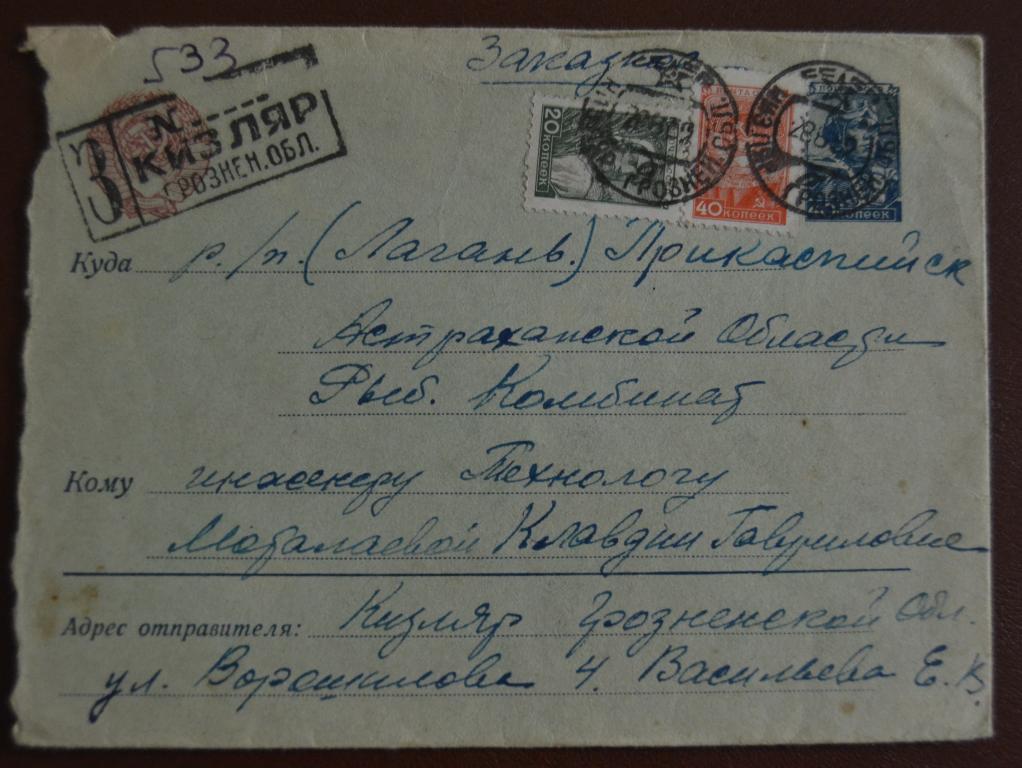 533
Заказное
З
N
КИЗЛЯР
ГРОЗНЕН. ОБЛ.
20 КОПЕЕК
ПОЧТА
40 КОПЕЕК
КОПЕЕК
ГРОЗНЕН. ОБЛ.
Куда р./п. (Лагань) Прикаспийск
Астраханской Области
Рыб. Комбинат
Кому инженеру Технологу
Клавдии Гавриловне
Адрес отправителя: Кизляр Грозненской Обл.
ул. Ворошилова 4 Васильева Е. К.